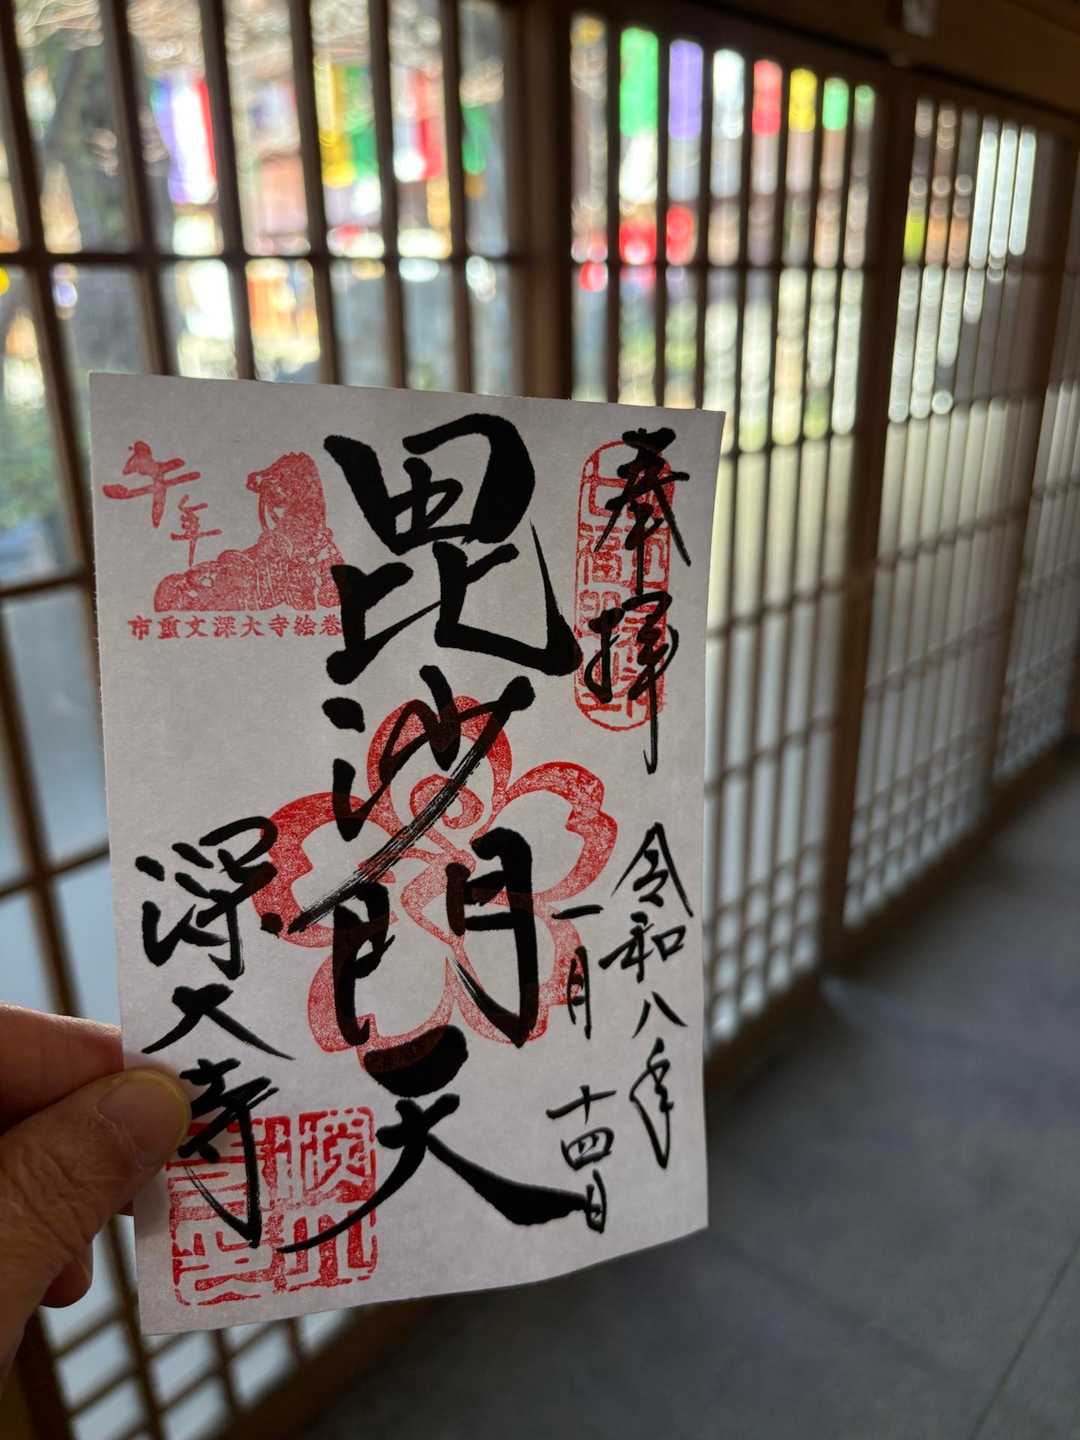 奉拝
令和八年
一月十四日
毘沙門天
午年
市重文深大寺絵巻
深大寺